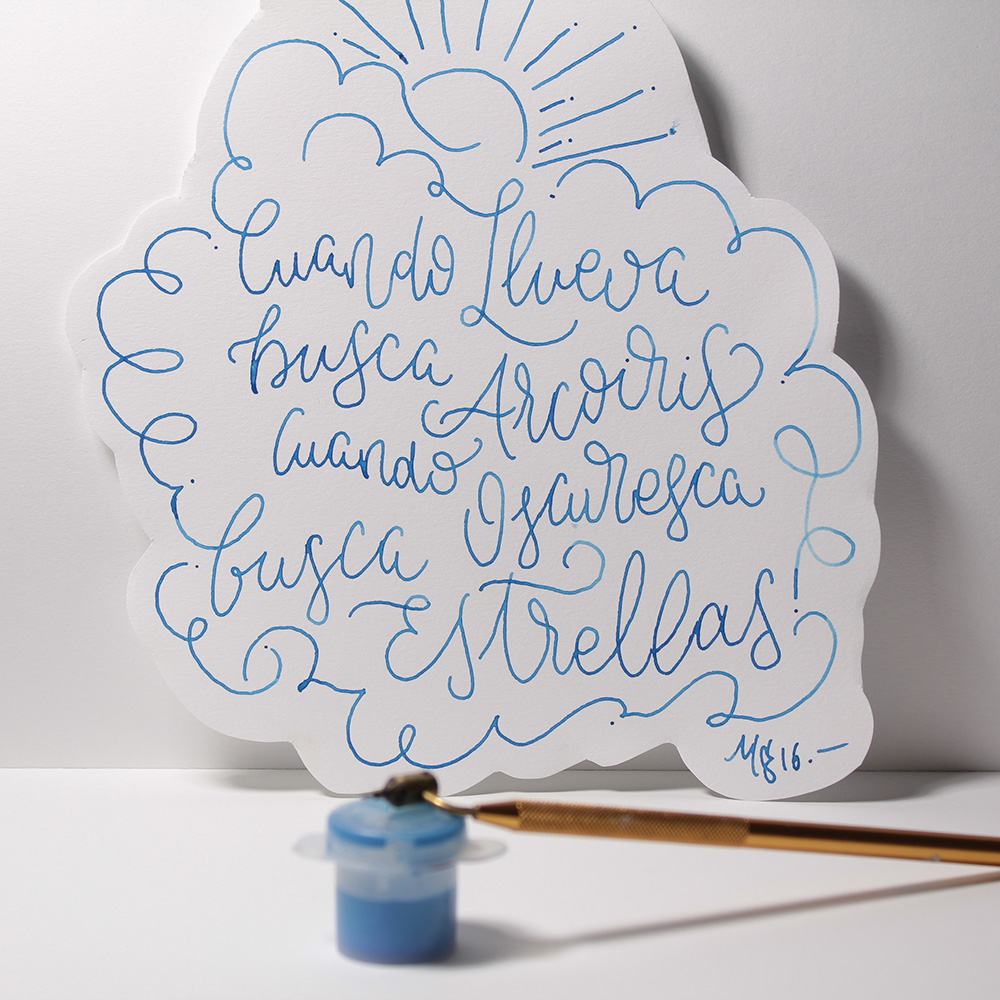 Cuando Llueva
busca Arcoiris
Cuando Oscuresca
busca Estrellas
MG16.-